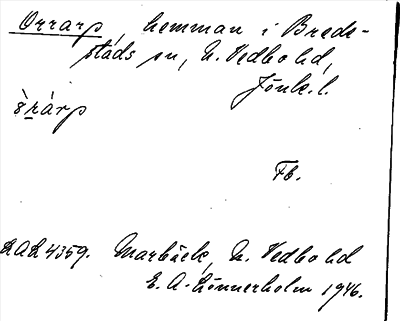 Orrarp, hemman i Breds-
städs sn, N. Vedbohd,
Jönk. l.
èràrp
Fb.
LAL 4359. Marbäck, N. Vedbohd
E. A. Lönnerholm 1946.